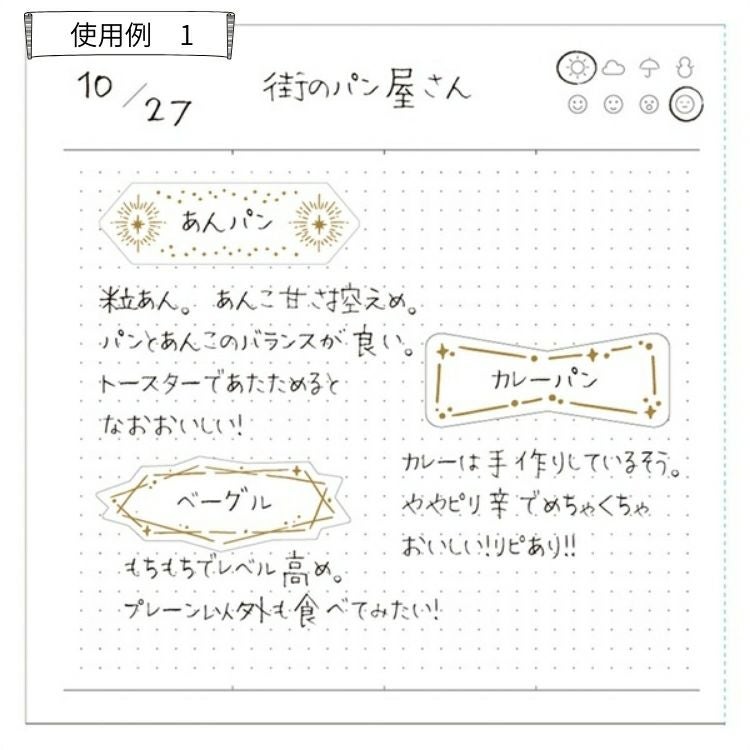 使用例 1
10/27
街のパン屋さん
あんパン
粒あん。 あんこ甘さは控えめ。
パンとあんこのバランスが良い。
トースターであたためると
なおおいしい!
カレーパン
カレーは手作りしているそう。
ややピリ辛でめちゃくちゃ
おいしい!リピあり!!
ベーグル
もちもちでレベル高め。
プレーン以外も食べてみたい!